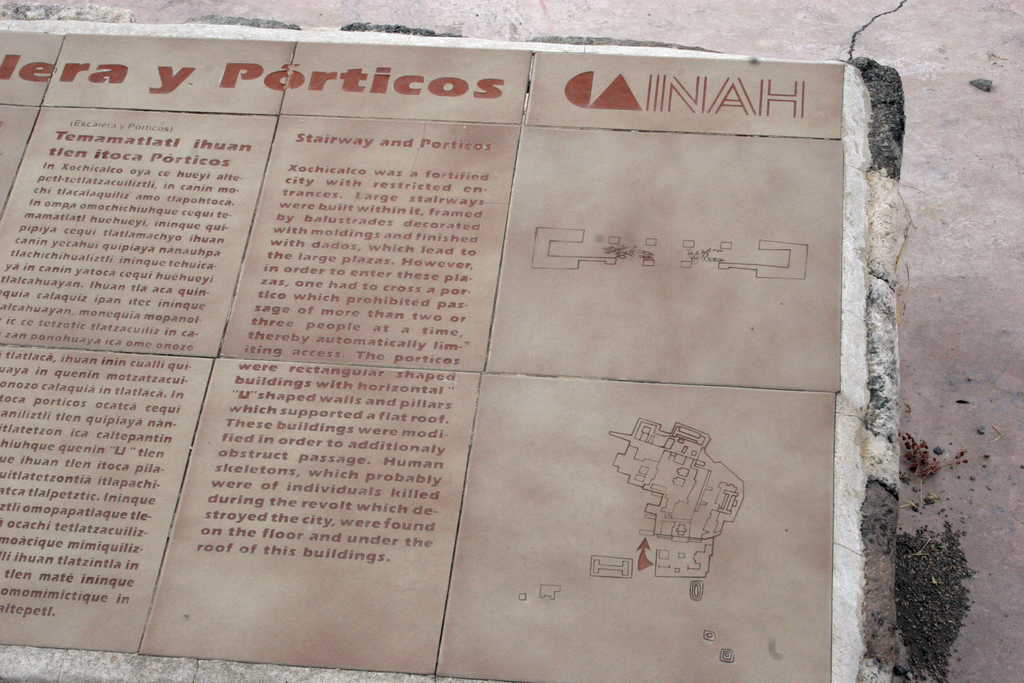 lera y Pórticos
INAH
(Escalera y Pórticos)
Temamatlatl ihuan
tlen itoca Pórticos
In Xochicalco oya ce hueyi alte-
petl-tetlatzacuiliztli, in canin mo-
chi tlacalaquiliz amo tlapohtoca.
In ompa omochichiuhque cequi te-
mamatlatl huehueyi, ininque qui-
pipiya cequi tlatlamachyo ihuan
canin yecahui quipiaya nanauhpa
tlachichihualiztli. ininque tehuica-
ya in canin yatoca cequi huehueyi
tlalcahuayan. Ihuan tla aca quin-
equia calaquiz ipan itec ininque
alcahuayan, monequia mopanol-
ic ce tetzotic tlatzacuiliz in ca-
zan ponohuaya ica ome onozo
tlatlacâ, ihuan inin cualli qui-
uaya in quenin motzatzacui-
onozo calaquia in tlatlacâ. In
toca porticos ocatca cequi
aniliztli tlen quipiaya nan-
itlatetzon ica caltepantin
hiuhque quenin "U" tlen
ue ihuan tlen itoca pila-
uitlatetzontia itlapachi-
atca tlalpetztic. Ininque
ztli omopapatlaque tle-
ocachi tetlatzacuiliz-
moâcique mimiquiliz-
lli ihuan tlatzintla in
tlen maté ininque
omomimictique in
altepetl.
Stairway and Porticos
Xochicalco was a fortified
city with restricted en-
trances. Large stairways
were built within it, framed
by balustrades decorated
with moldings and finished
with dados, which lead to
the large plazas. However,
in order to enter these pla-
zas, one had to cross a por-
tico which prohibited pas-
sage of more than two or
three people at a time,
thereby automatically lim-
iting access. The porticos
were rectangular shaped
buildings with horizontal
"U" shaped walls and pillars
which supported a flat roof.
These buildings were modi-
fied in order to additionaly
obstruct passage. Human
skeletons, which probably
were of individuals killed
during the revolt which de-
stroyed the city, were found
on the floor and under the
roof of this buildings.